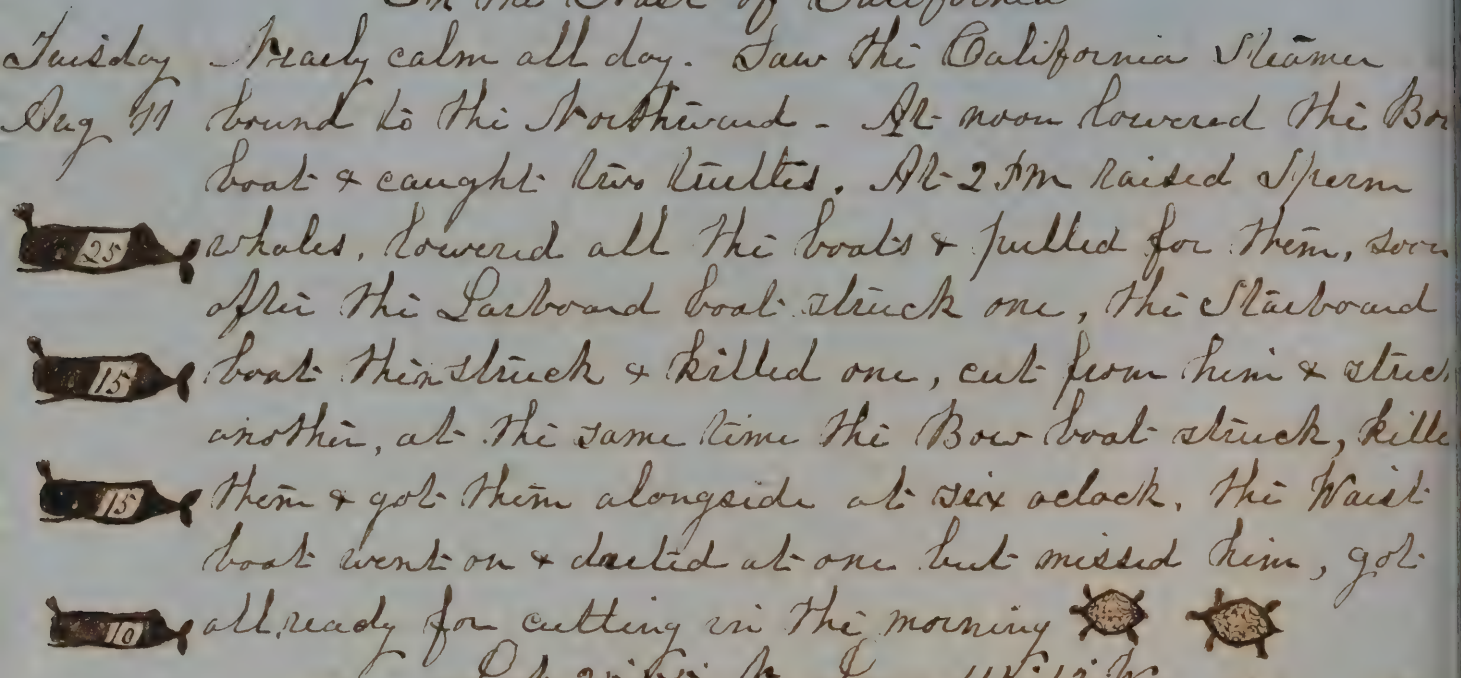 On the Coast of California
Tuesday Nearly calm all day. Saw the California Steamer
Aug 11 bound to the Northward - At noon lowered the Bow
boat & caught two turtles. At 2 PM raised Sperm
25 whales, lowered all the boats & pulled for them, soon
after the Larboard boat struck one, the Starboard
15 boat then struck & killed one, cut from him & struc
another, at the same time the Bow boat struck, kille
15 them & got them alongside at six oclock. The Waist
boat went on & darted at one but missed him, got
10 all ready for cutting in the morning